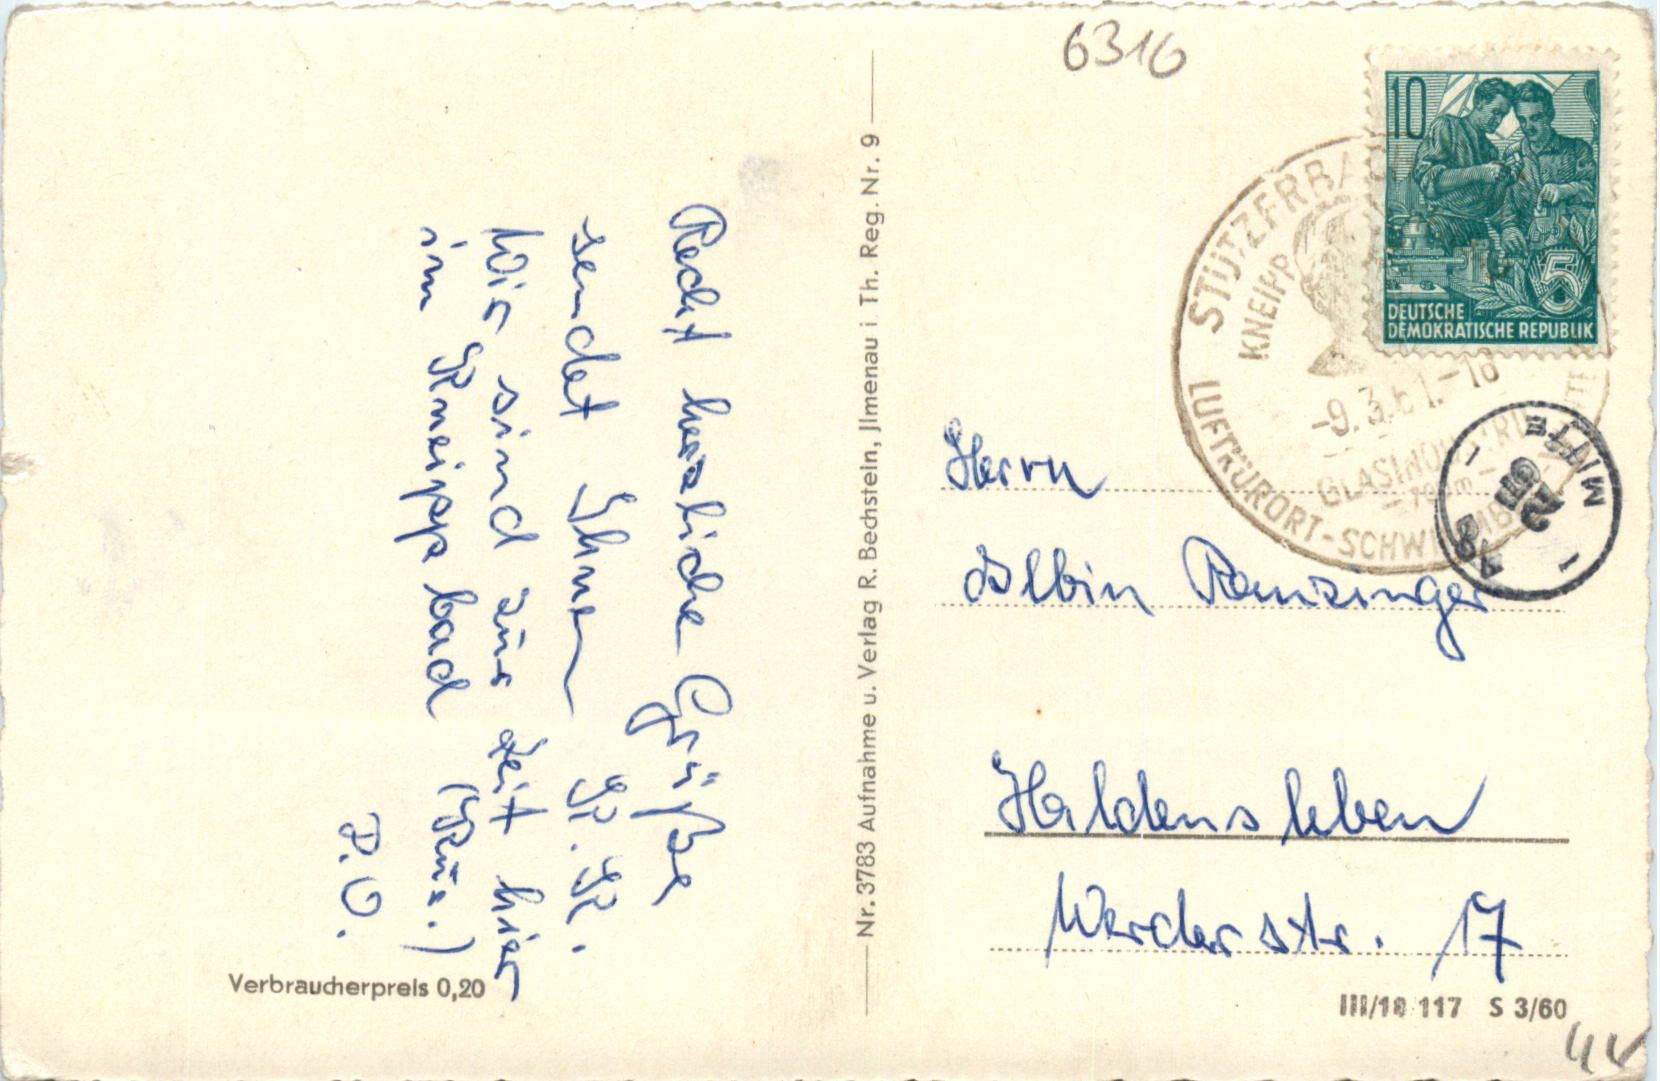 6316
10
5
DEUTSCHE
DEMOKRATISCHE REPUBLIK
STÜTZERBAC
KNEIPP
-9.3.61.-18
GLASINDUSTRIE
LUFTKURORT-SCHWIMMB
MITTE
18
Recht herzliche Grüße
sendet Ihnen K. K.
Wir sind zur Zeit hier
im Kneippbad (Kur.)
Nr. 3783 Aufnahme u. Verlag R. Bechstein, Jlmenau i. Th. Reg. Nr. 9
Herrn
Albin
Haldensleben
Werderstr. 17
Verbraucherpreis 0,20
III/18 117 S 3/60